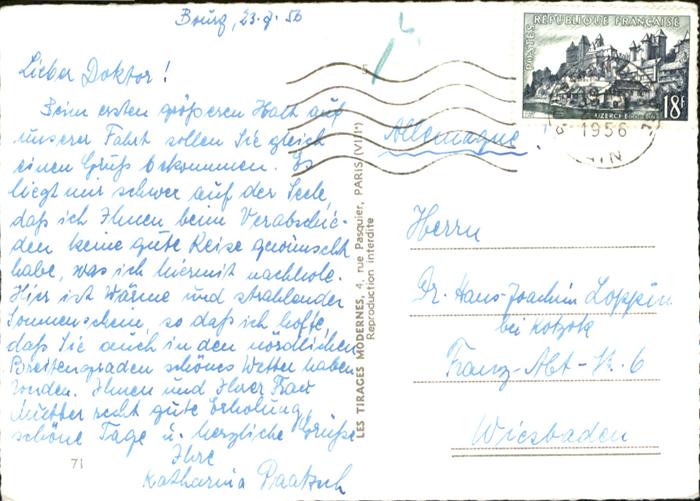 Bourg, 23.8.56
Lieber Doktor!
Beim ersten größeren Halt auf
unserer Fahrt sollen Sie gleich
einen Gruß bekommen. Es
liegt mir schwer auf der Seele,
daß ich Ihnen beim Verabschie-
den keine gute Reise gewünscht
habe, was ich hiermit nachhole.
Hier ist Wärme und strahlender
Sonnenschein, so daß ich hoffe,
daß Sie auch in den nördlichen
Breitengraden schönes Wetter haben
werden. Ihnen und Ihrer Frau
Mutter recht gute Erholung,
schöne Tage u. herzliche Grüße
Ihre
Katharina
71
LES TIRAGES MODERNES, 4, rue Pasquier, PARIS (VIIIe)
Reproduction interdite
POSTES REPUBLIQUE FRANÇAISE
UZERCHE
18F
1956
AIN
Allemagne
Herrn
Dr. Hans-Joachim Loppin
bei
Franz-Abt-Str. 6
Wiesbaden